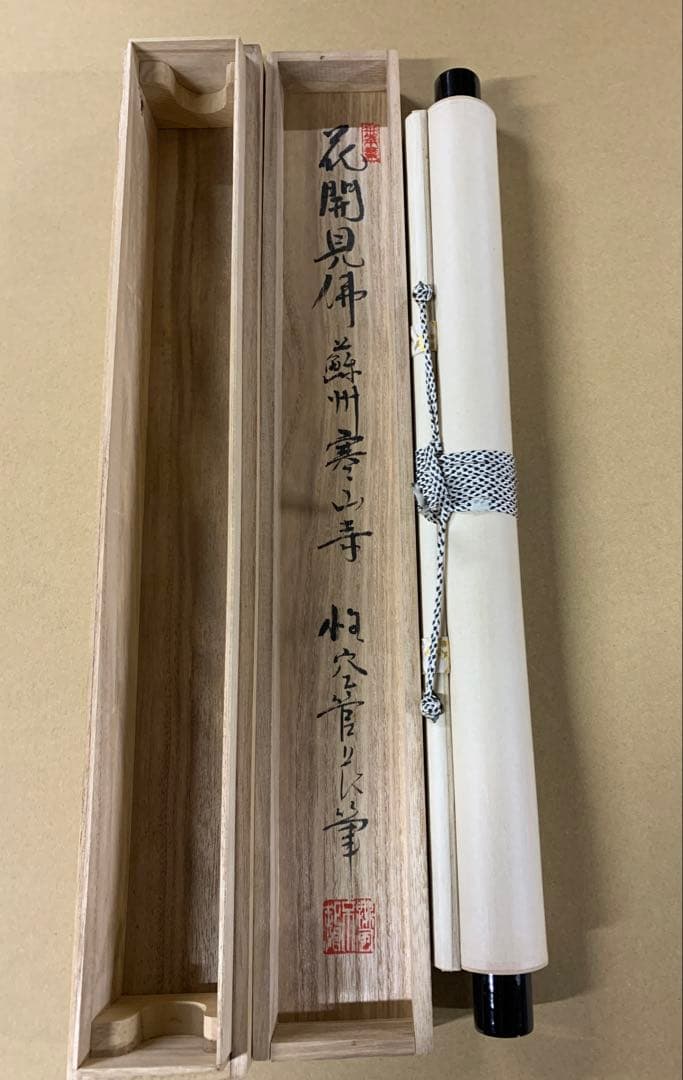 花開見佛 蘇州寒山寺 性空管長筆